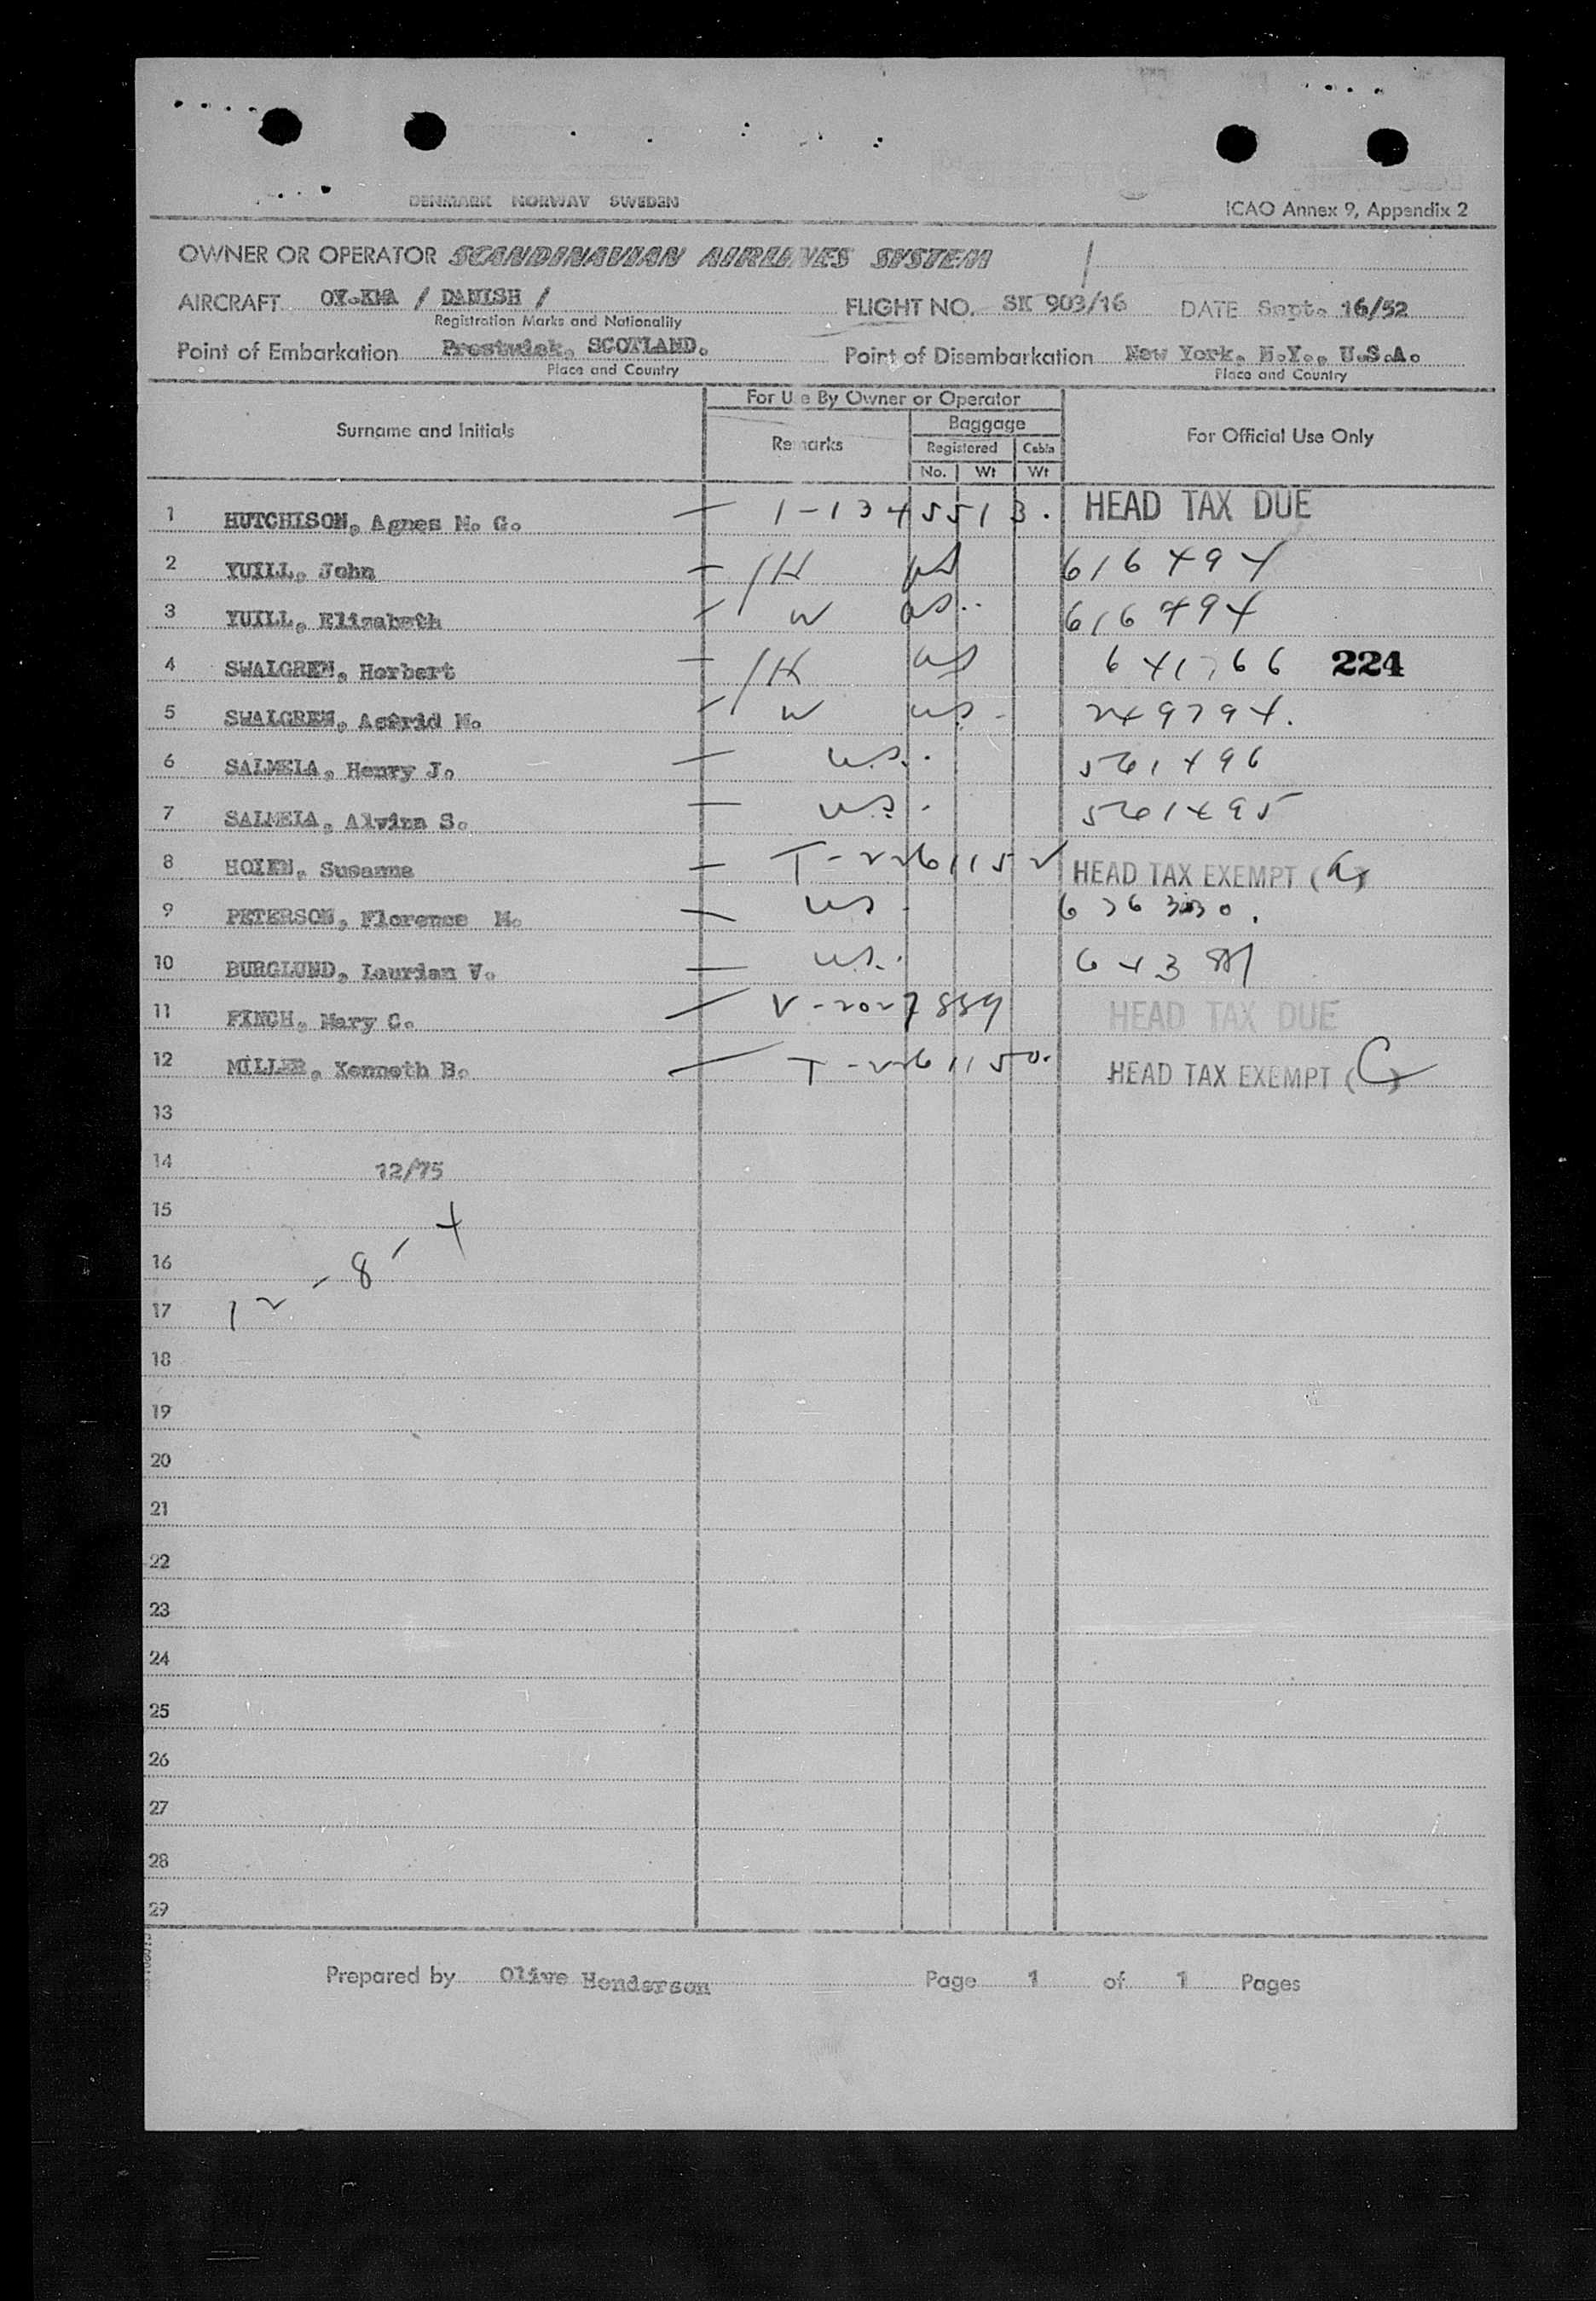 DENMARK NORWAY SWEDEN
ICAO Annex 9, Appendix 2
OWNER OR OPERATOR SCANDINAVIAN AIRLINES SYSTEM
AIRCRAFT OY-KMA / DANISH / FLIGHT NO. SK 903/16 DATE Sept. 16/52
Registration Marks and Nationality
Point of Embarkation Prestwick, SCOTLAND. Point of Disembarkation New York, N.Y., U.S.A.
Place and Country Place and Country
For Use By Owner or Operator
Surname and Initials Remarks Baggage For Official Use Only
Registered Cabin
No. Wt Wt
1 HUTCHISON, Agnes M. G. — 1-1345513. HEAD TAX DUE
2 YUILL, John — H US 616494
3 YUILL, Elizabeth W US.. 616494
4 SWALGREN, Herbert — H US 641766 224
5 SWALGREN, Astrid M. W US. 249794.
6 SALMELA, Henry J. — U.S. 561496
7 SALMELA, Alvina S. — U.S. 561495
8 HOLEN, Susanne — T-2261152 HEAD TAX EXEMPT ( )
9 PETERSON, Florence M. — US. 676330.
10 BURGLUND, Laurien V. — U.S. 643
11 FINCH, Mary C. — V-2027839 HEAD TAX DUE
12 MILLER, Kenneth B. — T-2261150. HEAD TAX EXEMPT (C)
13
14 12/75
15
16
12 - 8 - 4
17
18
19
20
21
22
23
24
25
26
27
28
29
Prepared by Olive Henderson Page 1 of 1 Pages